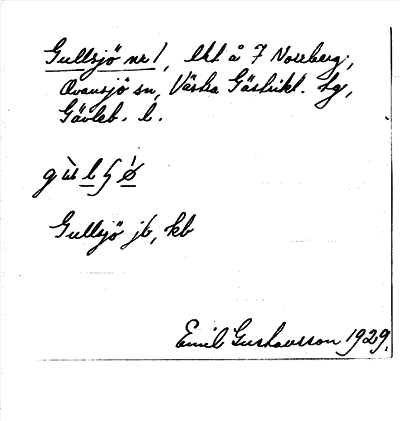 Gullsjö nr 1, lht å 7 Norrberg,
Ovansjö sn, Västra Gästrikl. tg,
Gävleb. l.
gùlʃö̀
Gullsjö jb, kb
Emil Gustavsson 1929.